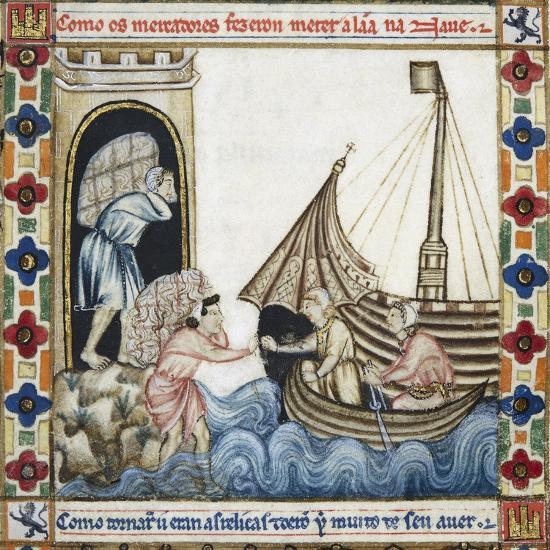 Como os mercadores fezeron meter a lãa na Naue.
Como tornar u eran as relicas dero y muito de seu auer.